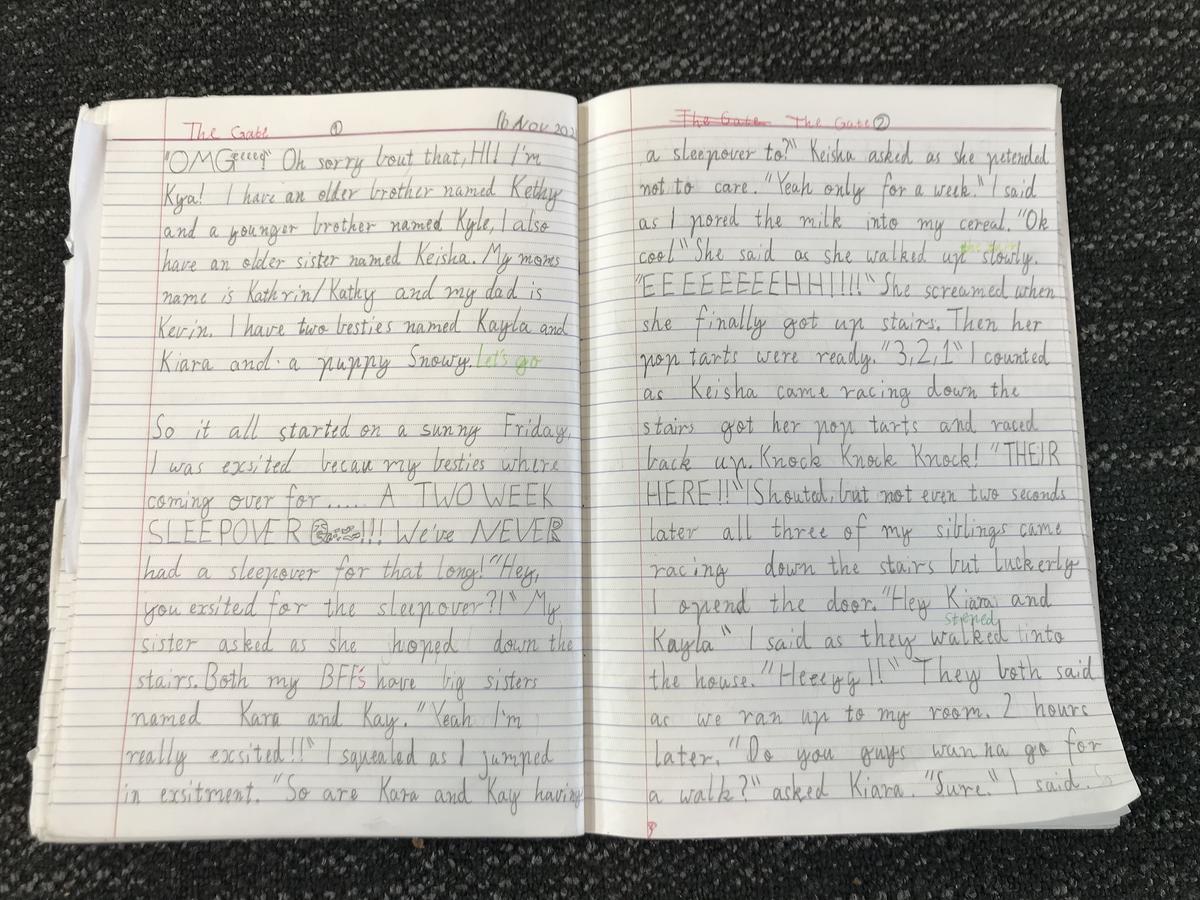 The Gate ① 16 Nov 202
"OMGeeee" Oh sorry bout that, HI! I'm
Kya! I have an older brother named Kethy
and a younger brother named Kyle, I also
have an older sister named Keisha. My moms
name is Kathrin/Kathy and my dad is
Kevin. I have two besties named Kayla and
Kiara and a puppy Snowy. Let's go
So it all started on a sunny Friday,
I was exsited becau my besties where
coming over for..... A TWO WEEK
SLEEPOVER !!! We've NEVER
had a sleepover for that long! "Hey,
you exsited for the sleepover?!" My
sister asked as she hoped down the
stairs. Both my BFF's have big sisters
named Kara and Kay. "Yeah I'm
really exsited!!" I squealed as I jumped
in exsitment. "So are Kara and Kay having
The Gate The Gate ②
a sleepover to?" Keisha asked as she petended
not to care. "Yeah only for a week." I said
as I pored the milk into my cereal. "Ok
cool" She said as she walked up slowly.
"EEEEEEEEHH!!!!" She screamed when
she finally got up stairs. Then her
pop tarts were ready. "3,2,1" I counted
as Keisha came racing down the
stairs got her pop tarts and raced
back up. Knock Knock Knock! "THEIR
HERE!!" I Shouted, but not even two seconds
later all three of my siblings came
racing down the stairs but luckerly
I opend the door. "Hey Kiara and
stened
Kayla" I said as they walked into
the house. "Heeeyy!!" They both said
as we ran up to my room. 2 hours
later. "Do you guys wanna go for
a walk?" asked Kiara. "Sure." I said.